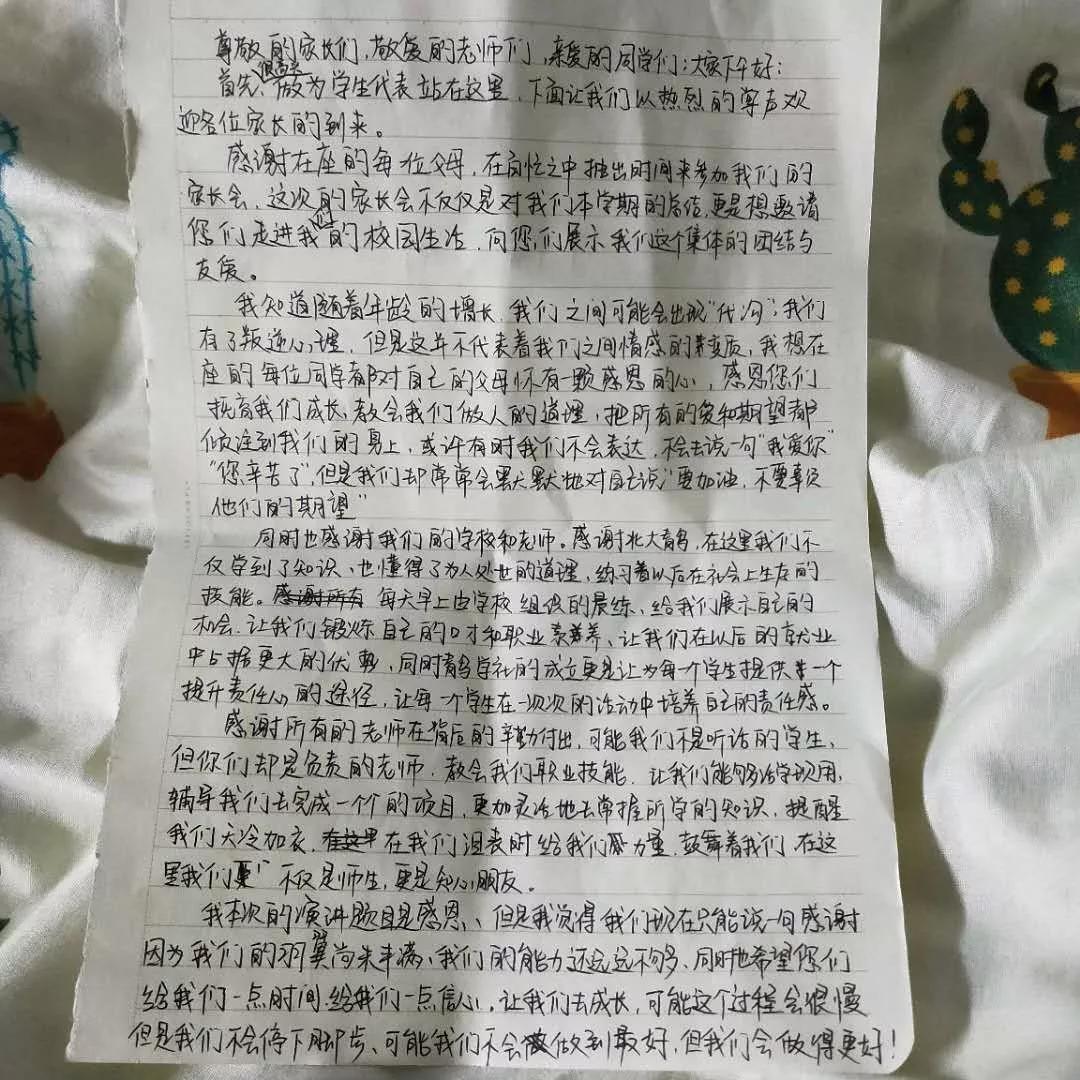 尊敬的家长们,敬爱的老师们,亲爱的同学们:大家下午好:
首先,很高兴做为学生代表站在这里,下面让我们以热烈的掌声欢
迎各位家长的到来。
感谢在座的每位父母,在百忙之中抽出时间来参加我们的
家长会,这次的家长会不仅仅是对我们本学期的总结,更是想邀请
您们走进我们的校园生活,向您们展示我们这个集体的团结与
友爱。
我知道随着年龄的增长,我们之间可能会出现“代沟”;我们
有了叛逆心理,但是这并不代表着我们之间情感的变质,我想在
座的每位同学都对自己的父母怀有一颗感恩的心,感恩您们
抚育我们成长,教会我们做人的道理,把所有的爱和期望都
倾注到我们的身上,或许有时我们不会表达,不会去说一句“我爱你”
“您辛苦了”,但是我们却常常会默默地对自己说;“要加油,不要辜负
他们的期望”
同时也感谢我们的学校和老师。感谢北大青鸟,在这里我们不
仅学到了知识、也懂得了为人处世的道理,练习着以后在社会上生存的
技能。每天早上由学校组织的晨练、给我们展示自己的
机会,让我们锻炼自己的口才和职业素养、让我们在以后的就业
中占据更大的优势、同时青鸟学社的成立更是让为每一个学生提供一个
提升责任心的途径,让每一个学生在一次次的活动中培养自己的责任感。
感谢所有的老师在背后的辛勤付出,可能我们不是听话的学生、
但你们却是负责的老师,教会我们职业技能,让我们能够活学现用,
辅导我们去完成一个个的项目,更加灵活地去掌握所学的知识,提醒
我们天冷加衣,在我们沮丧时给我们力量,鼓舞着我们,在这
里我们不仅是师生,更是知心朋友。
我本次的演讲题目是感恩、但是我觉得我们现在只能说一句感谢
因为我们的羽翼尚未丰满、我们的能力还远远不够、同时也希望您们
给我们一点时间,给我们一点信心,让我们去成长,可能这个过程会很慢
但是我们不会停下脚步、可能我们不会做到最好,但我们会做得更好!